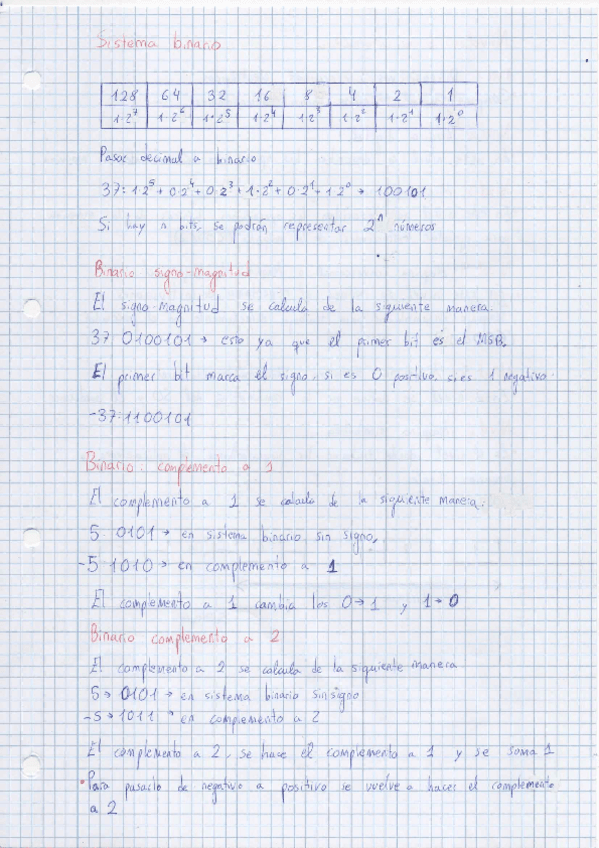 Sistema binario
128 64 32 16 8 4 2 1
1·2⁷ 1·2⁶ 1·2⁵ 1·2⁴ 1·2³ 1·2² 1·2¹ 1·2⁰
Pasar decimal a binario
37: 1·2⁵ + 0·2⁴ + 0·2³ + 1·2² + 0·2¹ + 1·2⁰ → 100101
Si hay n bits, se podrán representar 2ⁿ números
Binario signo-magnitud
El signo-magnitud se calcula de la siguiente manera.
37 0100101 → esto ya que el primer bit es el MSB.
El primer bit marca el signo, si es 0 positivo, si es 1 negativo.
-37·1100101
Binario: complemento a 1
El complemento a 1 se calcula de la siguiente manera:
5· 0101 → en sistema binario sin signo.
-5 1010 → en complemento a 1
El complemento a 1 cambia los 0→1 y 1→0
Binario complemento a 2
El complemento a 2 se calcula de la siguiente manera
5 → 0101 → en sistema binario sin signo
-5 → 1011 → en complemento a 2
El complemento a 2, se hace el complemento a 1 y se suma 1
•Para pasarlo de negativo a positivo se vuelve a hacer el complemento
a 2